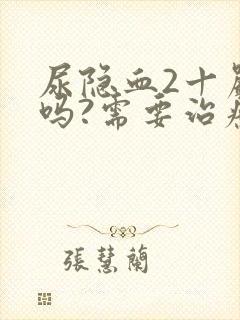 尿隐血2十
吗?需要治
張慧蘭